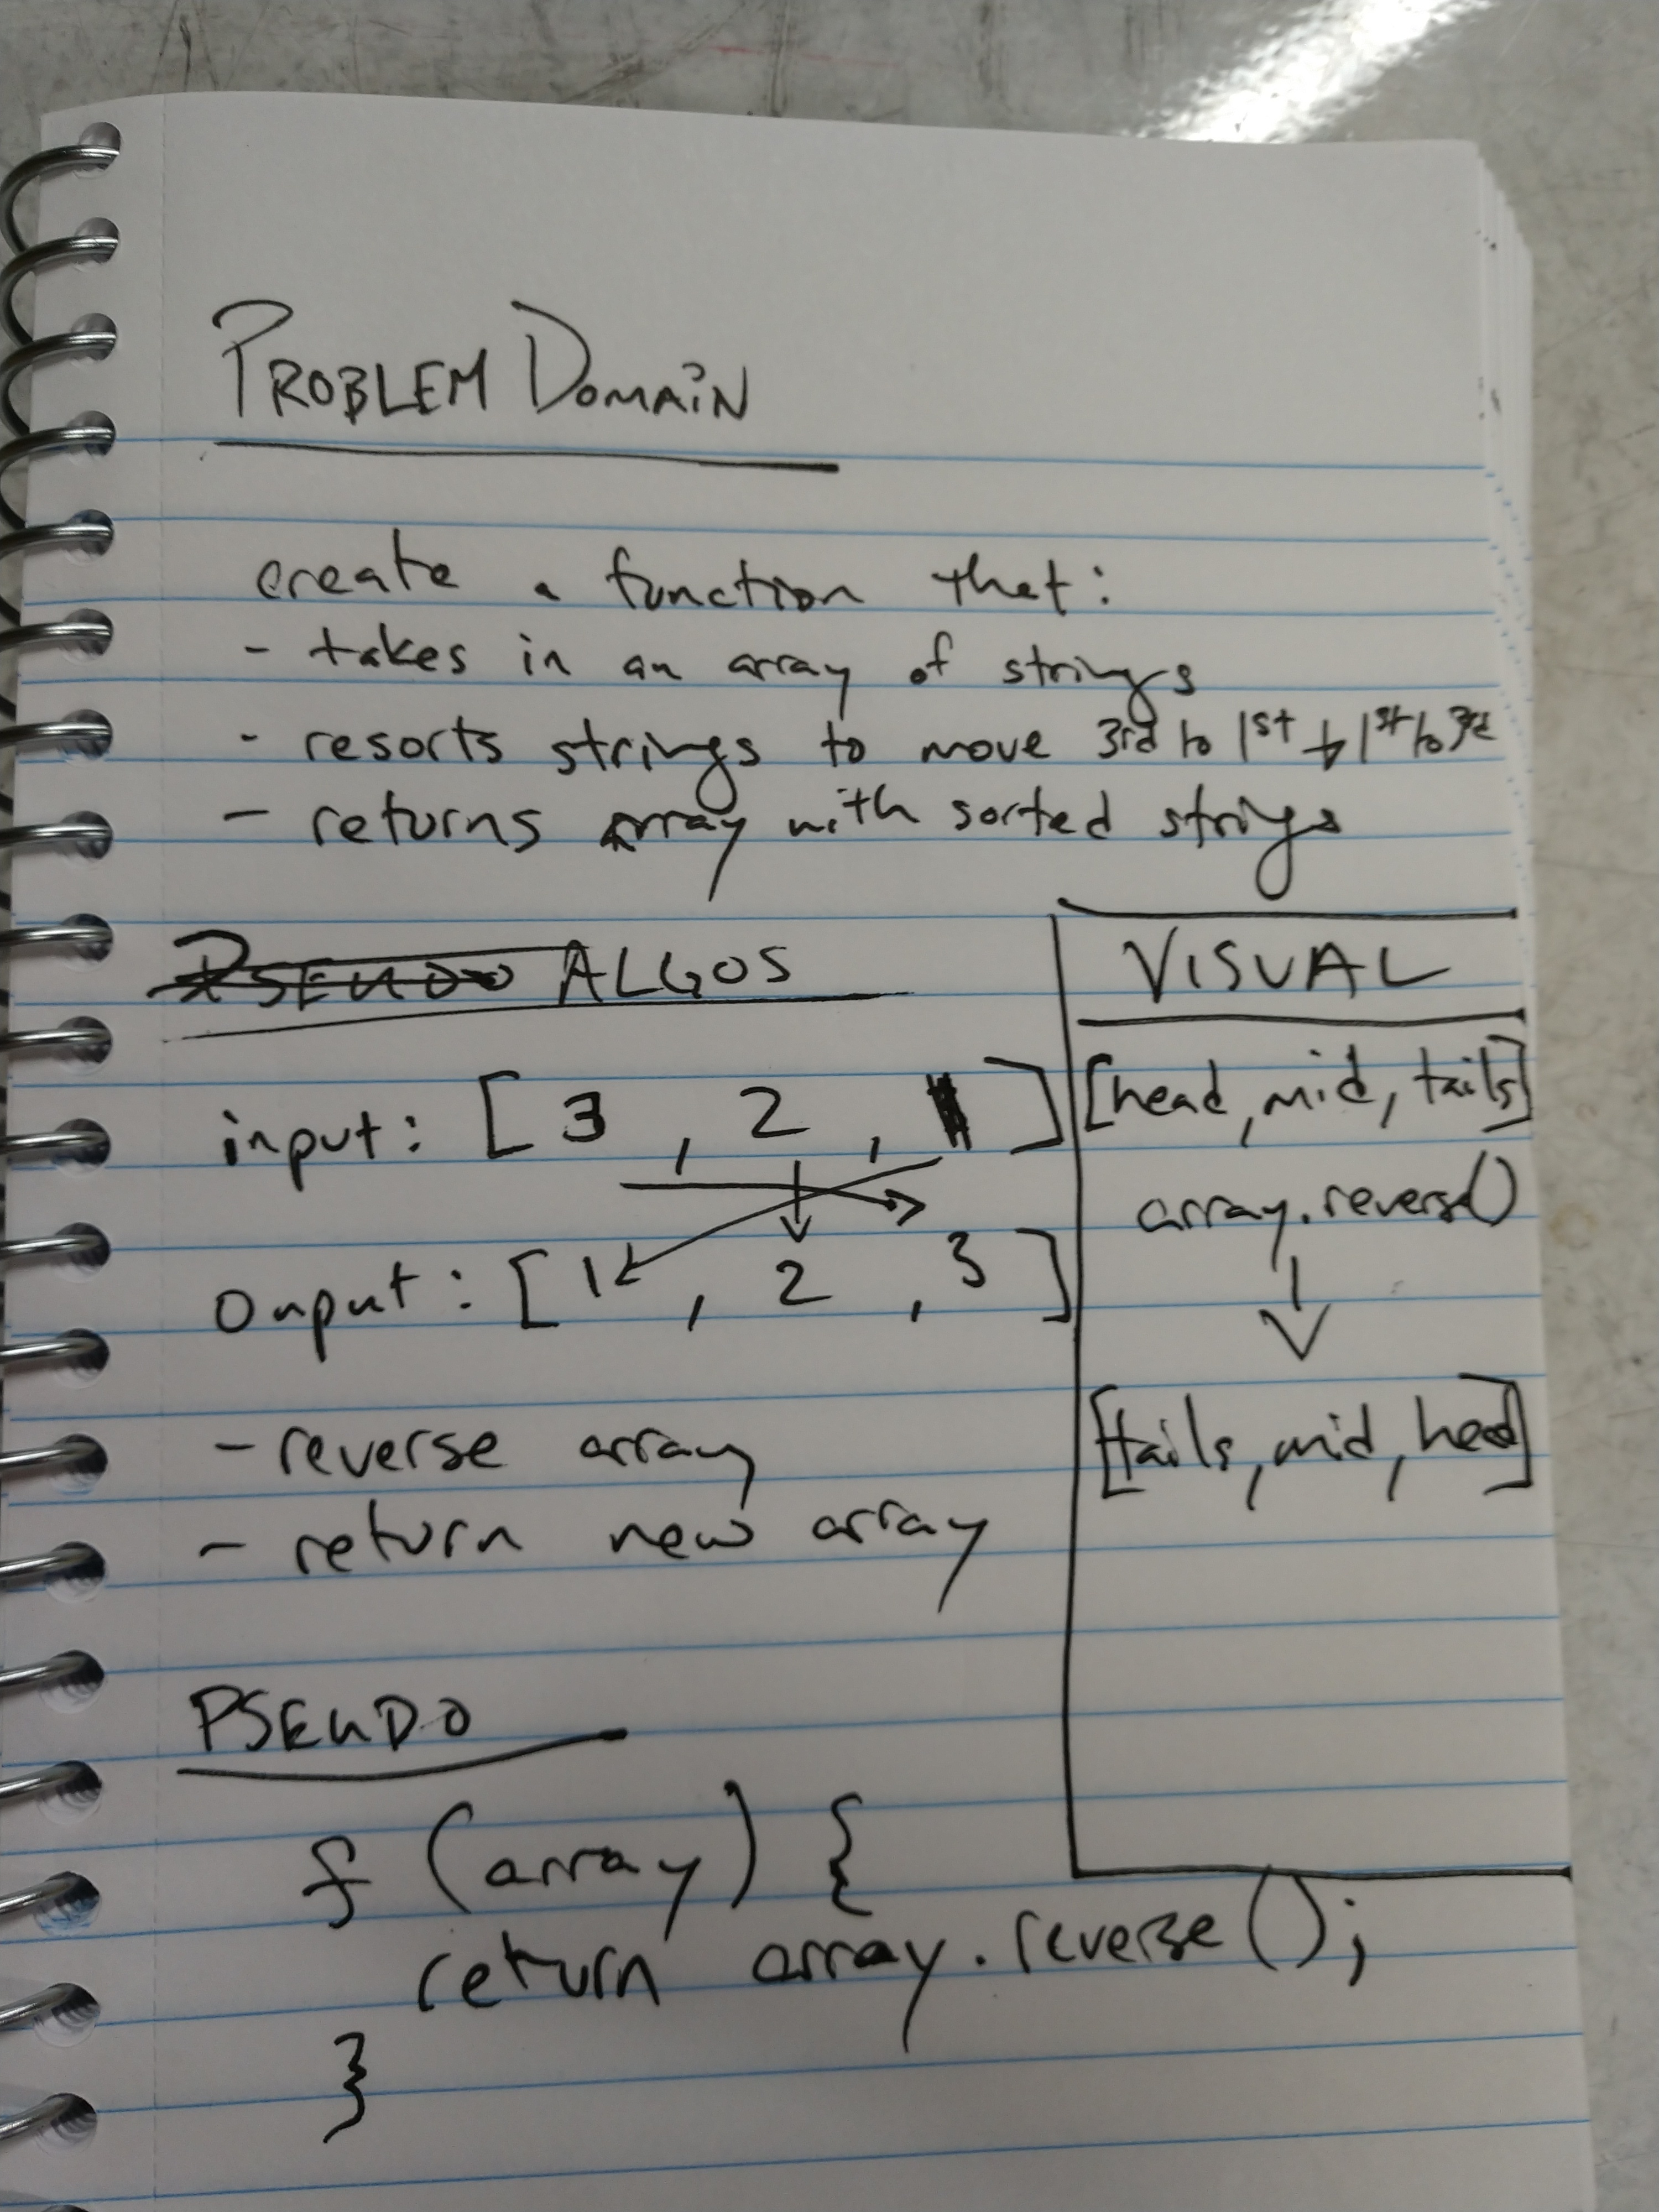 PROBLEM DOMAIN
create a function that:
- takes in an array of strings
- resorts strings to move 3rd to 1st + 1st to 3rd
- returns array with sorted strings
PSEUDO ALGOS
input: [ 3 , 2 , 1 ]
Onput: [ 1 , 2 , 3 ]
- reverse array
- return new array
VISUAL
[head, mid, tails]
array.reverse()
[tails, mid, head]
PSEUDO
f (array) {
return array.reverse();
}